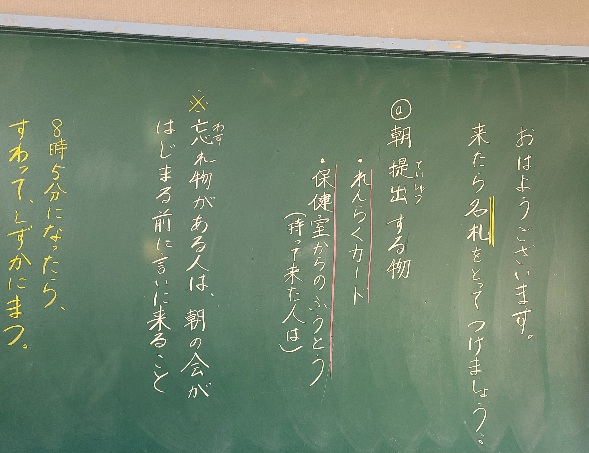 おはようございます。
来たら名札をとってつけましょう:
ⓐ朝提出する物
ていしゅつ
・れんらくカート
・保健室からのふうとう
(持って来た人は)
※忘れ物がある人は、朝の会が
わす
はじまる前に言いに来ること
8時5分になったら、
すわって、しずかにまつ。